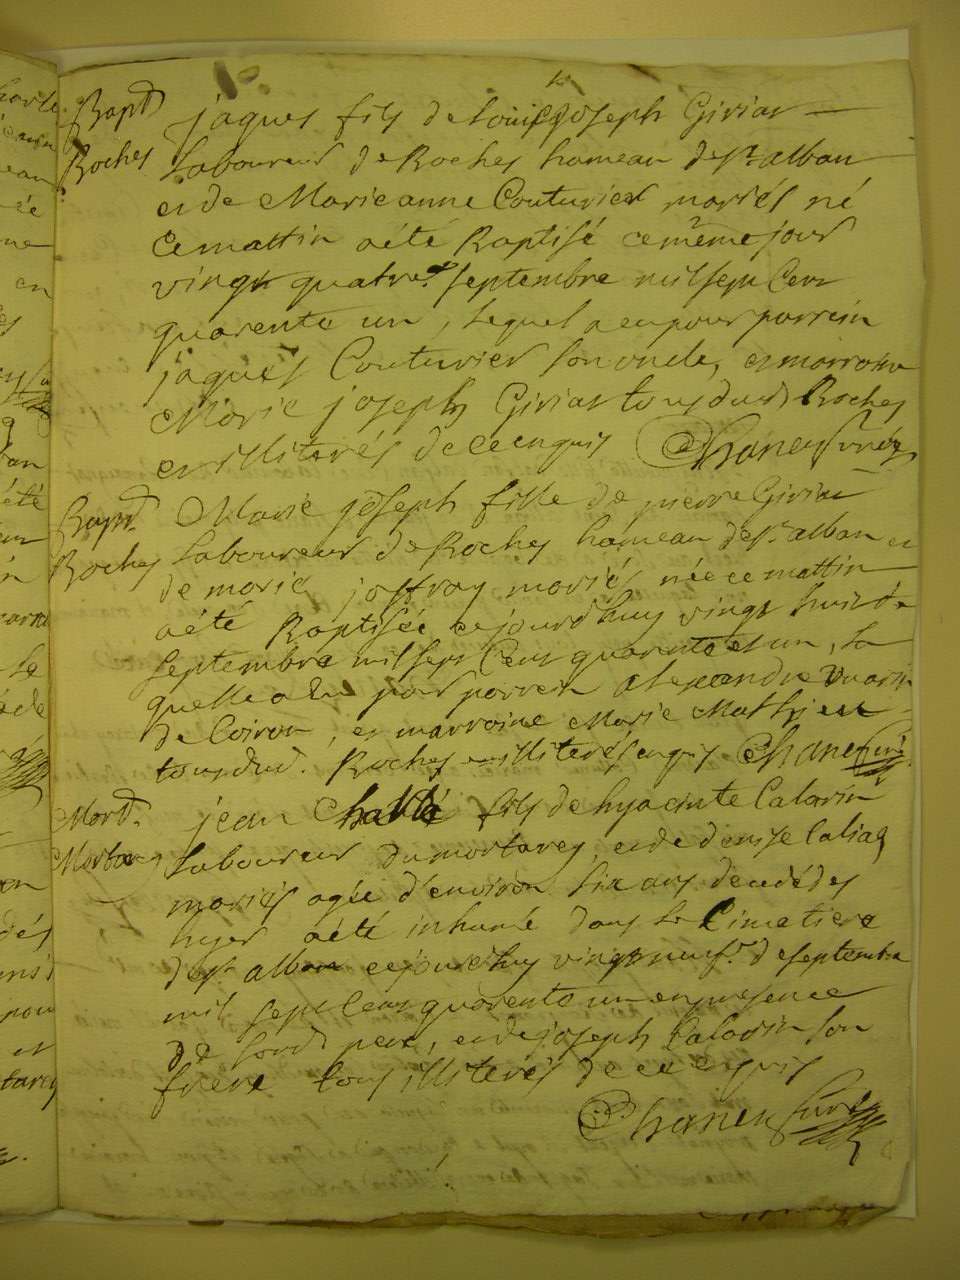 Bapt.
Roches
jaques fils de Louis joseph Giriat
Laboureur de Roches hameau de St. alban
et de Marie anne Couturier mariés né
Ce mattin a été Baptisé ce même jour
vingt quatre septembre mil sept Cent
quarente un, lequel a eu pour parrein
jaques Couturier son oncle, et marroine
Marie joseph Giriat tous dud. Roches
et illiterés de ce enquis Chaney Curé
Bapt.
Roches
Marie joseph fille de pierre Giriat
Laboureur de Roches hameau de St. alban et
de marie joffray mariés née ce mattin
a été Baptisée ce jourd'huy vingt huit de
septembre mil sept Cent quarente et un, la
quelle a eu pour parrein alexandre
de Coiron, et marroine Marie Mathieu
tous dud. Roches illiterés enquis Chaney Curé
Mort.
Mortarey
jean Chablé fils de hyacinte Calarin
Laboureur du mortarey, et de denise Caliaq
mariés agée d'environ six ans decedé des
hyer a été inhumé dans le Cimetiere
de St. alban ce jourd'huy vingt neuf de septembre
mil sept Cent quarente un en presence
de sond. pere, et de joseph Calarin son
frere tous illiterés de ce enquis
Chaney Curé